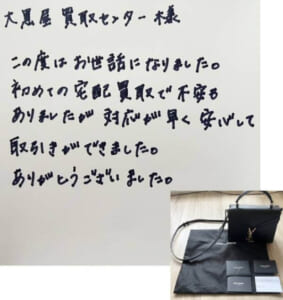 大黒屋 買取センター 様
この度はお世話になりました。
初めての宅配買取で不安も
ありましたが 対応が早く 安心して
取引きができました。
ありがとうございました。